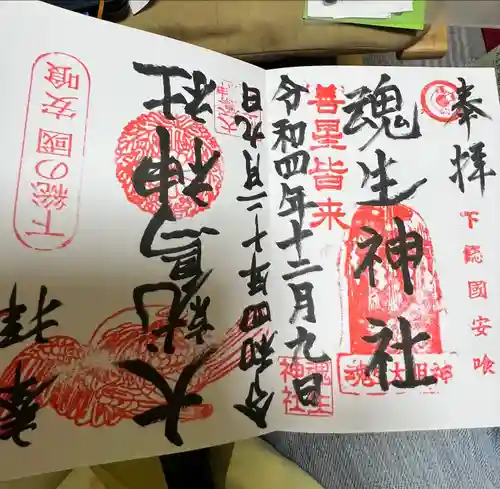 奉拝
下總國安喰
魂生神社
魂生大明神
善星皆来
令和四年十二月九日
魂生神社
奉拝
下総の國安喰
大鷲神社
令和四年十二月九日